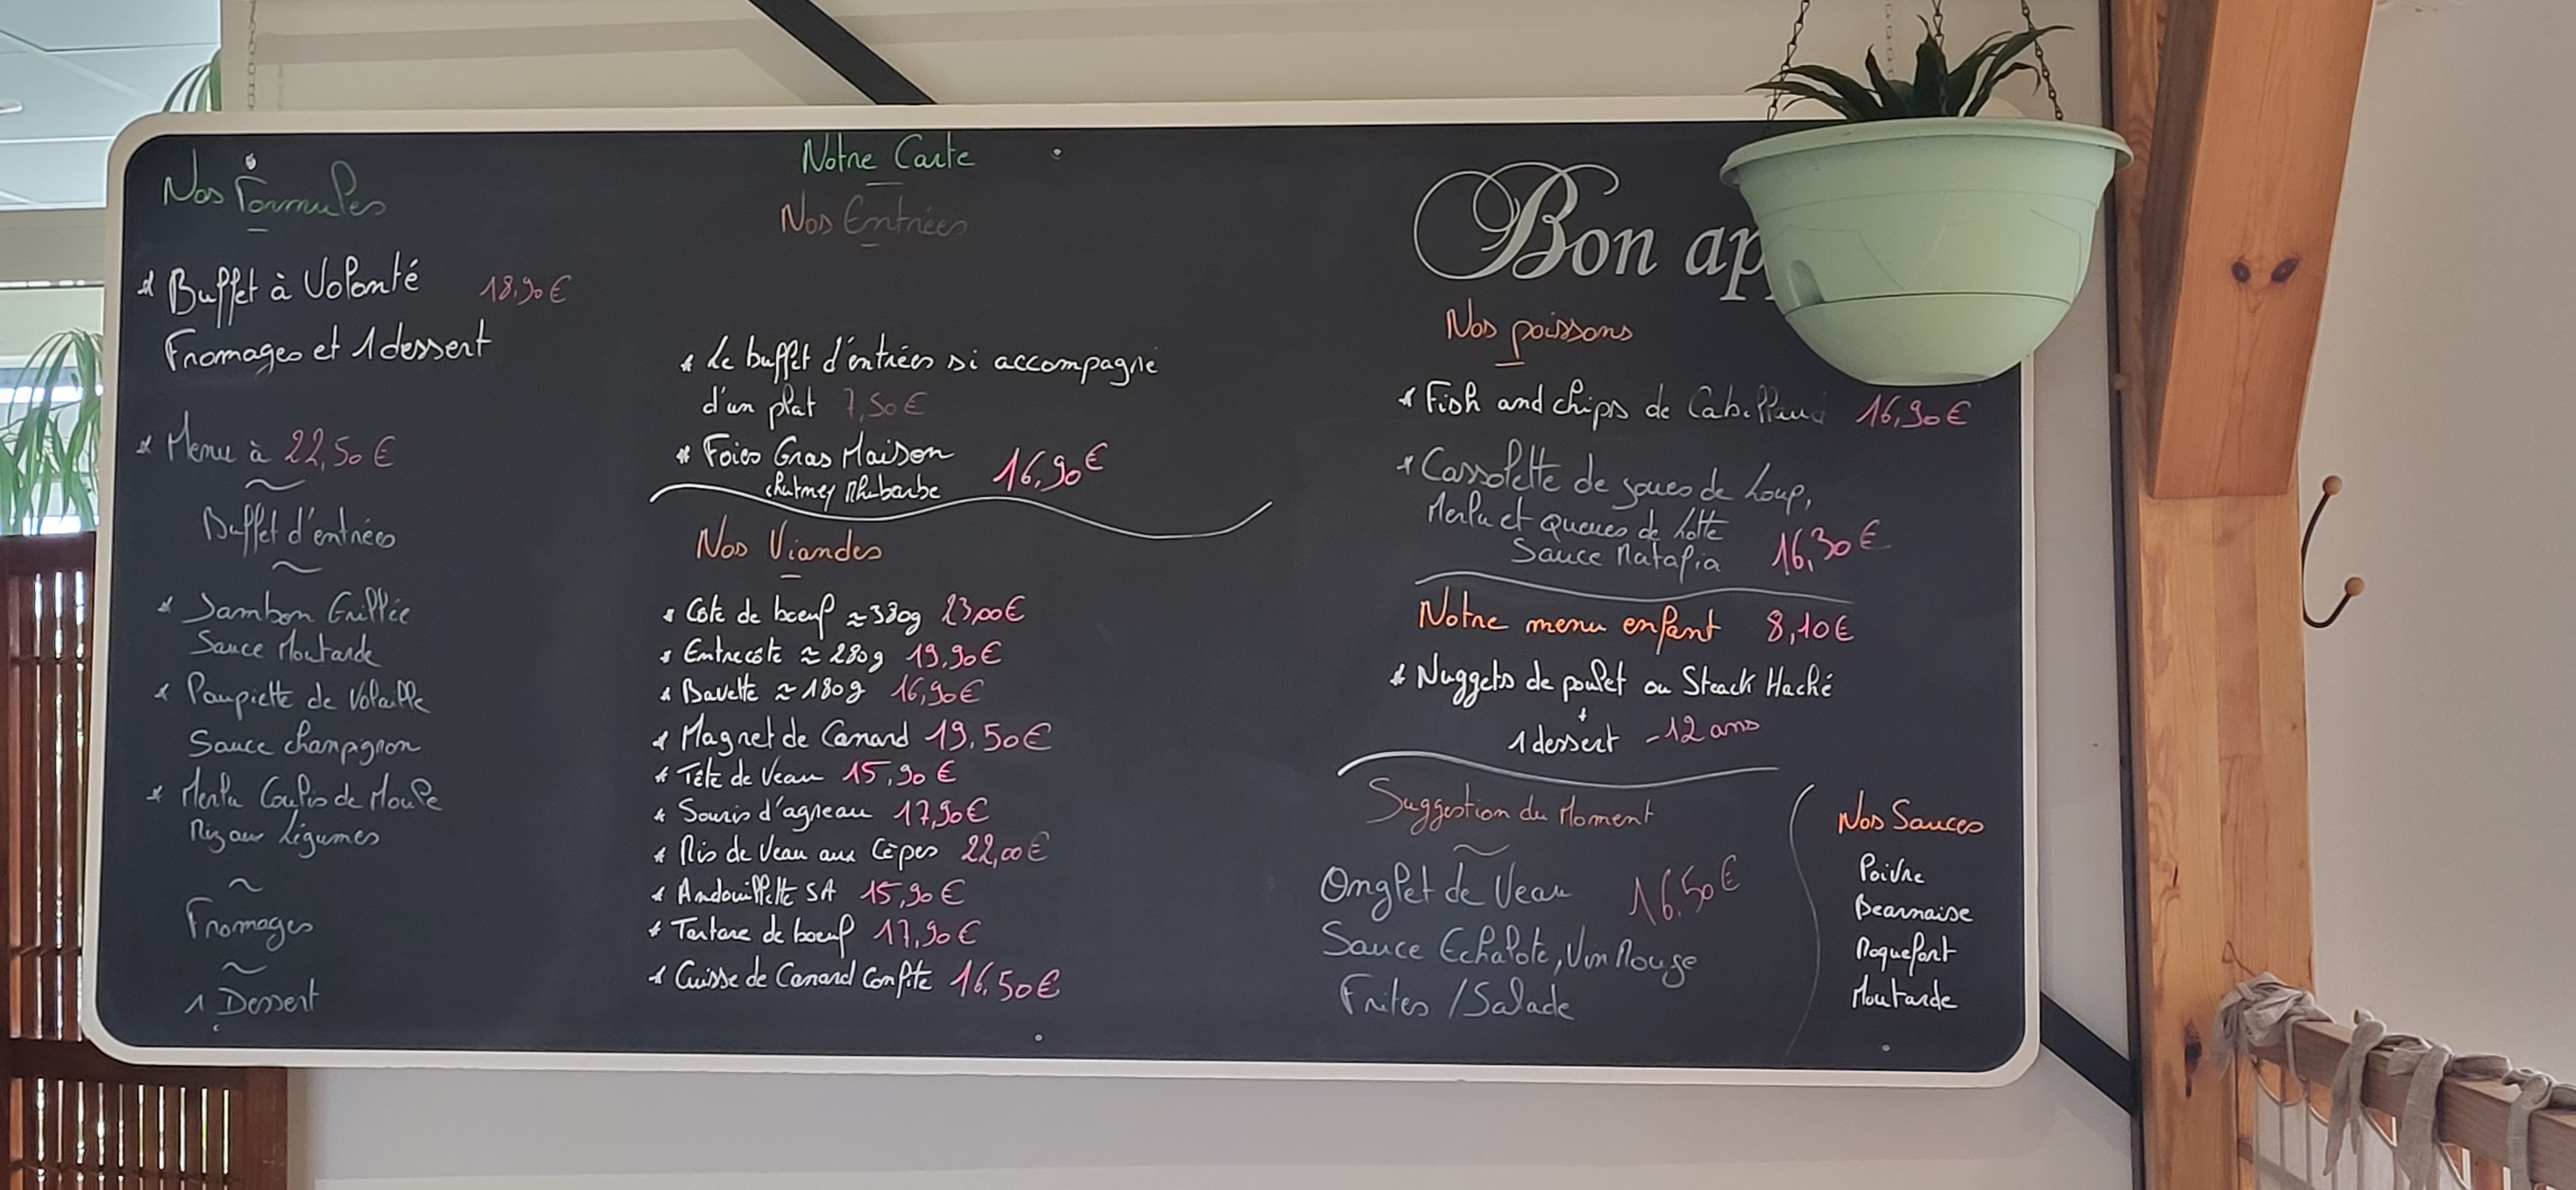 Nos Formules
* Buffet à Volonté 18,90€
Fromages et 1 dessert
* Menu à 22,50€
~
Buffet d'entrées
~
* Jambon Grillée
Sauce Moutarde
* Paupiette de Volaille
Sauce champignon
* Merlu Coulis de Moule
Riz aux légumes
~
Fromages
~
1 Dessert
Notre Carte
Nos Entrées
* Le buffet d'entrées si accompagné
d'un plat 7,50€
* Foies Gras Maison 16,90€
chutney Rhubarbe
Nos Viandes
* Côte de boeuf ≈330g 23,00€
* Entrecôte ≈ 280g 19,90€
* Bavette ≈180g 16,90€
* Magret de Canard 19,50€
* Tête de Veau 15,90€
* Souris d'agneau 17,90€
* Ris de Veau aux Cèpes 22,00€
* Andouillette 5A 15,90€
* Tartare de boeuf 17,90€
* Cuisse de Canard Confite 16,50€
Bon ap
Nos poissons
* Fish and chips de Cabillaud 16,90€
* Cassolette de joues de Loup,
Merlu et queues de Lotte
Sauce Ratafia 16,30€
Notre menu enfant 8,10€
* Nuggets de poulet ou Steack Haché
+
1 dessert -12 ans
Suggestion du Moment
~
Onglet de Veau 16,50€
Sauce Echalote, Vin Rouge
Frites / Salade
Nos Sauces
Poivre
Bearnaise
Roquefort
Moutarde